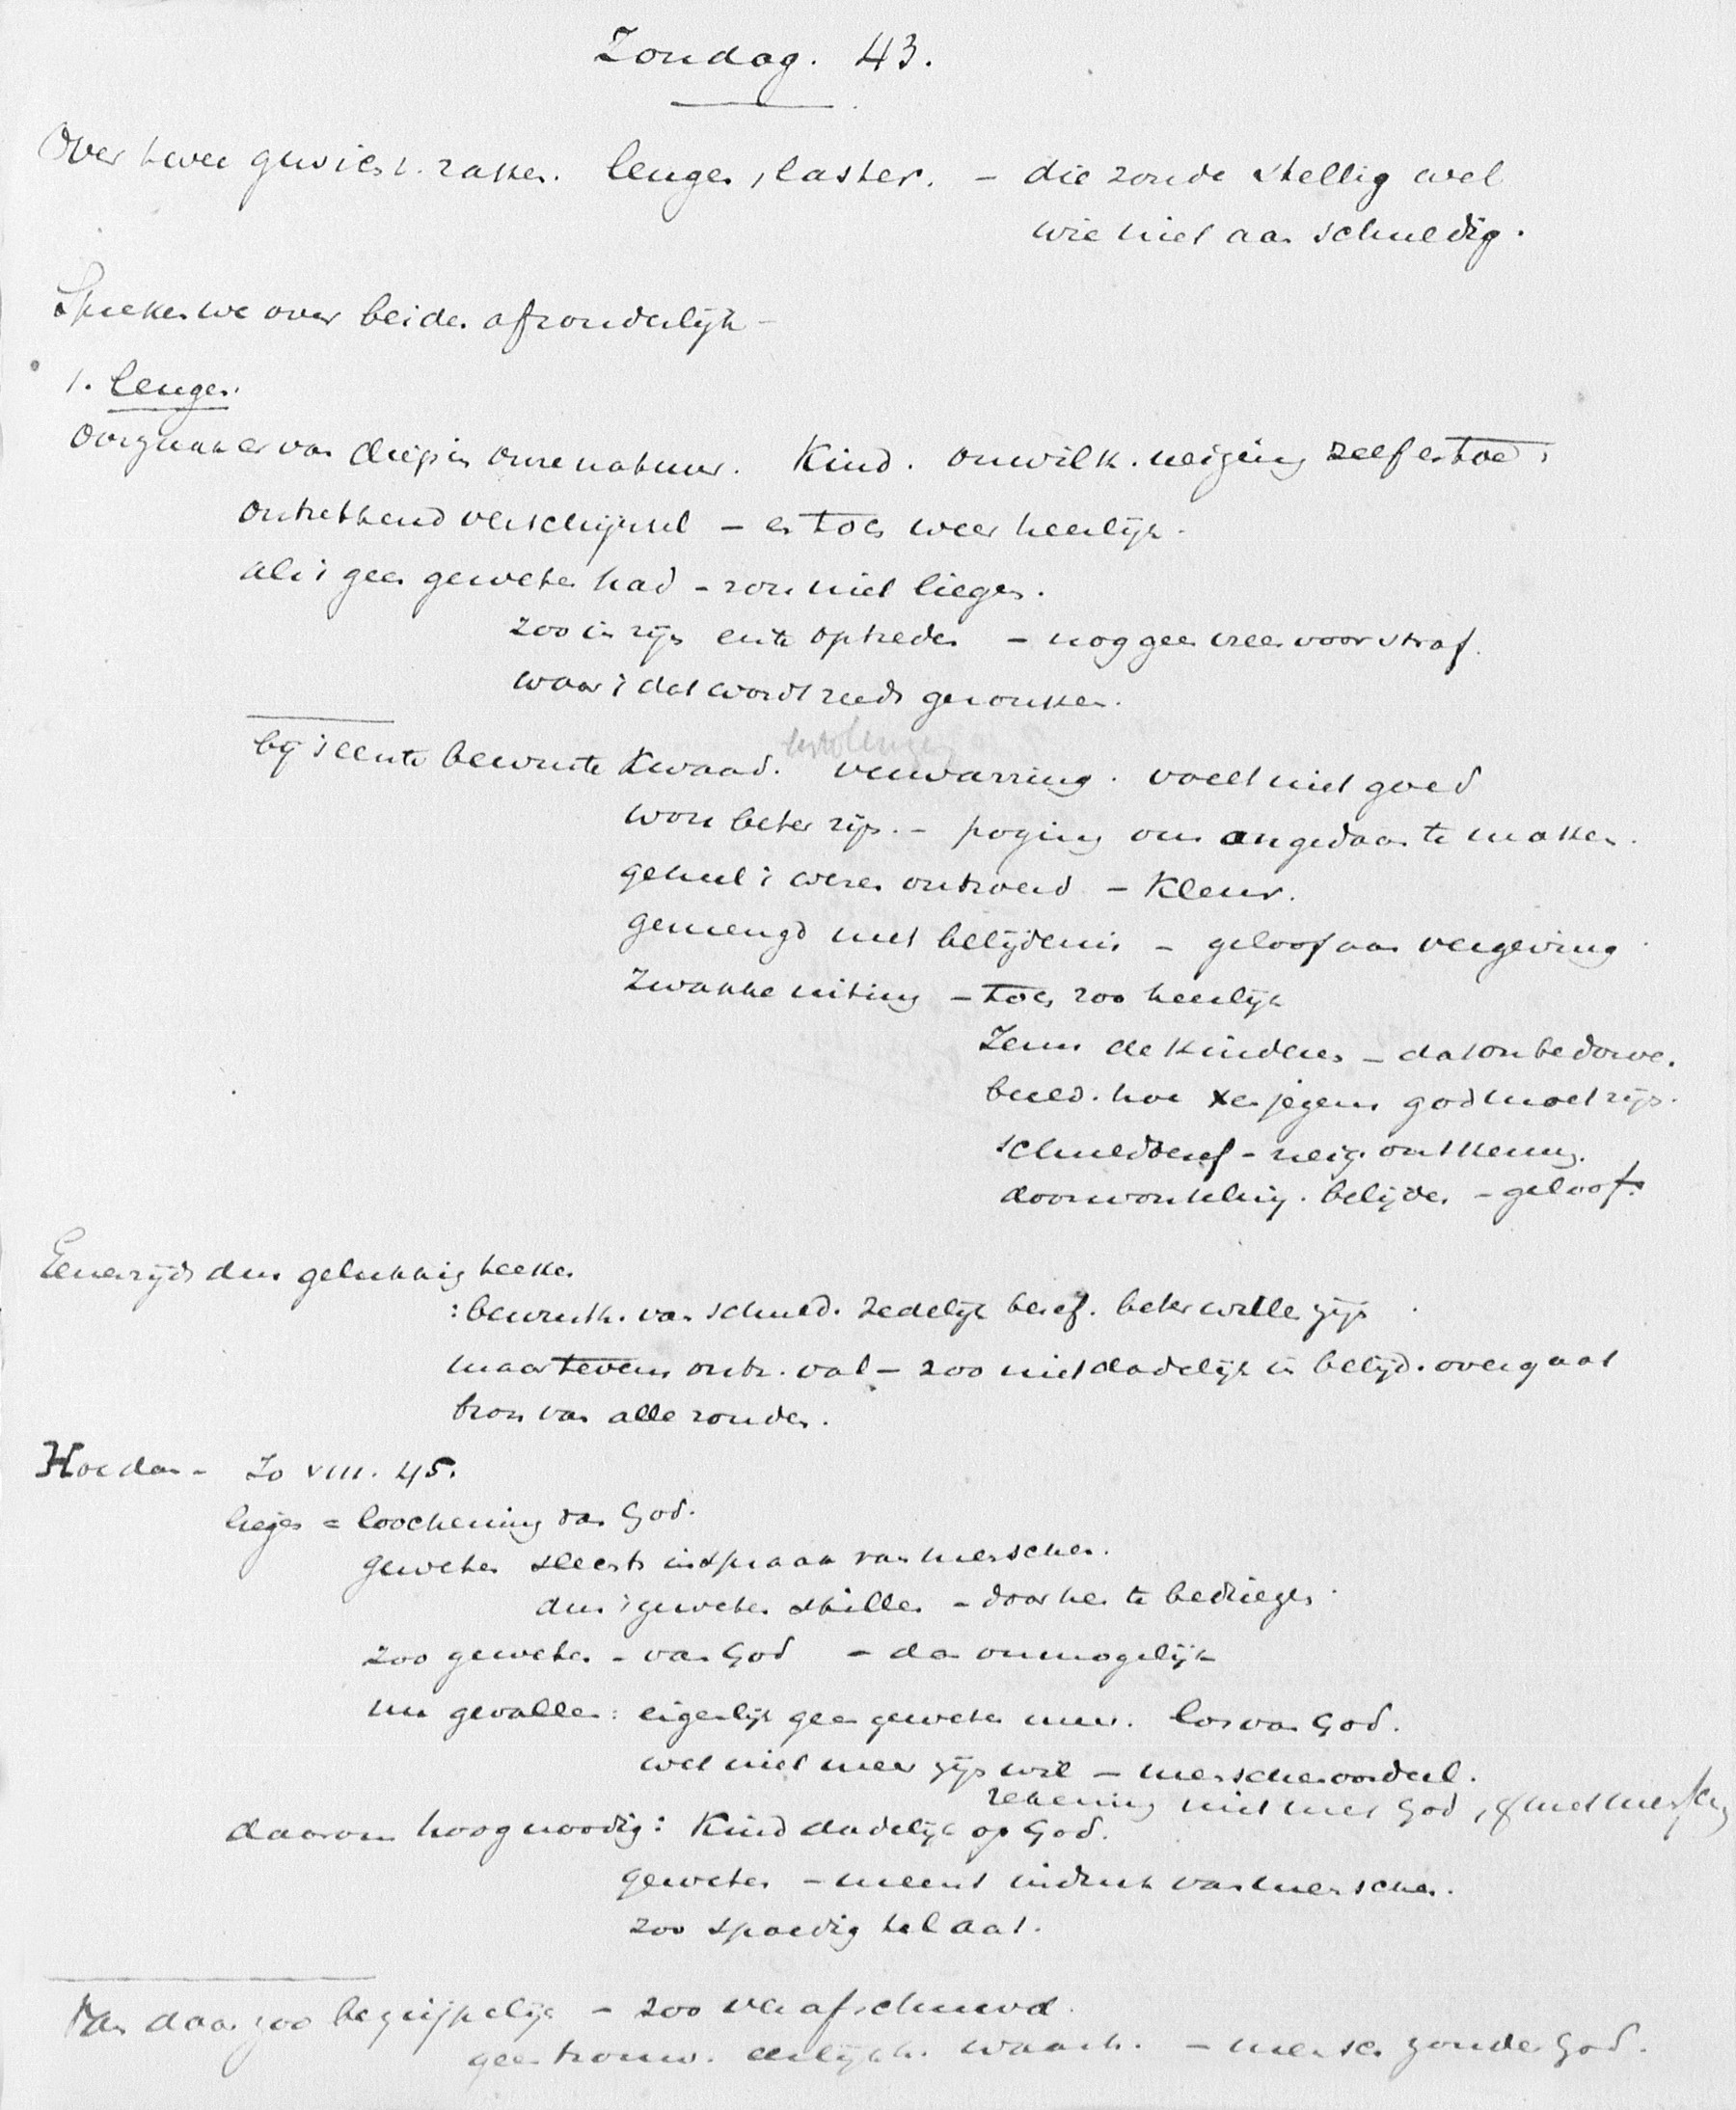 Zondag. 43.
Over twee gewicht. zaken. leugen, laster. – die zonde stellig wel
wie niet aan schuldig.
Spreken we over beiden afzonderlijk –
1. leugen.
Oorzaak er van diep in onze natuur. Kind. onwillk. neiging zelf er toe,
ontzettend verschijnsel – en toch weer heerlijk.
als 't geen geweten had – zou niet liegen.
zoo in zijn eerste optreden – nog geen vrees voor straf.
waar 't dat wordt reeds gezonken.
bij 't eerste bewuste Kwaad. verwarring. voelt niet goed
wou beter zijn. – poging om ongedaan te maken.
geheel 't wezen ontroerd – Kleur.
gemengd met belijdenis – geloof aan vergeving
Zwakke uiting – toch zoo heerlijk
Jezus de kinderen – dat onbedorve.
beeld. hoe jegens God moet zijn.
schuldbesef – neig. ontkenning.
doorworsteling. belijden – geloof.
Eenerzijds dus gelukkig teeken
: bewusth. van schuld. zedelijk besef. beter willen zijn
maar tevens ontz. val – zoo niet dadelijk in belijd. overgaat
bron van alle zonden.
Hoe dan – Jo VIII. 45.
liegen = loochening van God.
geweten slechts inspraak van menschen.
dus 't geweten stillen – door hen te bedriegen
zoo geweten – van God – dan onmogelijk
nu gevallen: eigenlijk geen geweten meer. los van God.
wet niet meer zijn wil – menschenoordeel.
rekening niet met God, met menschen
daarom hoog noodig: Kind dadelijk op God.
geweten – meent indruk van menschen.
zoo spoedig te laat.
Van daar zoo begrijpelijk – zoo verafschuwd.
geen trouw. eerlijkh. waarh. – mensch zonder God.